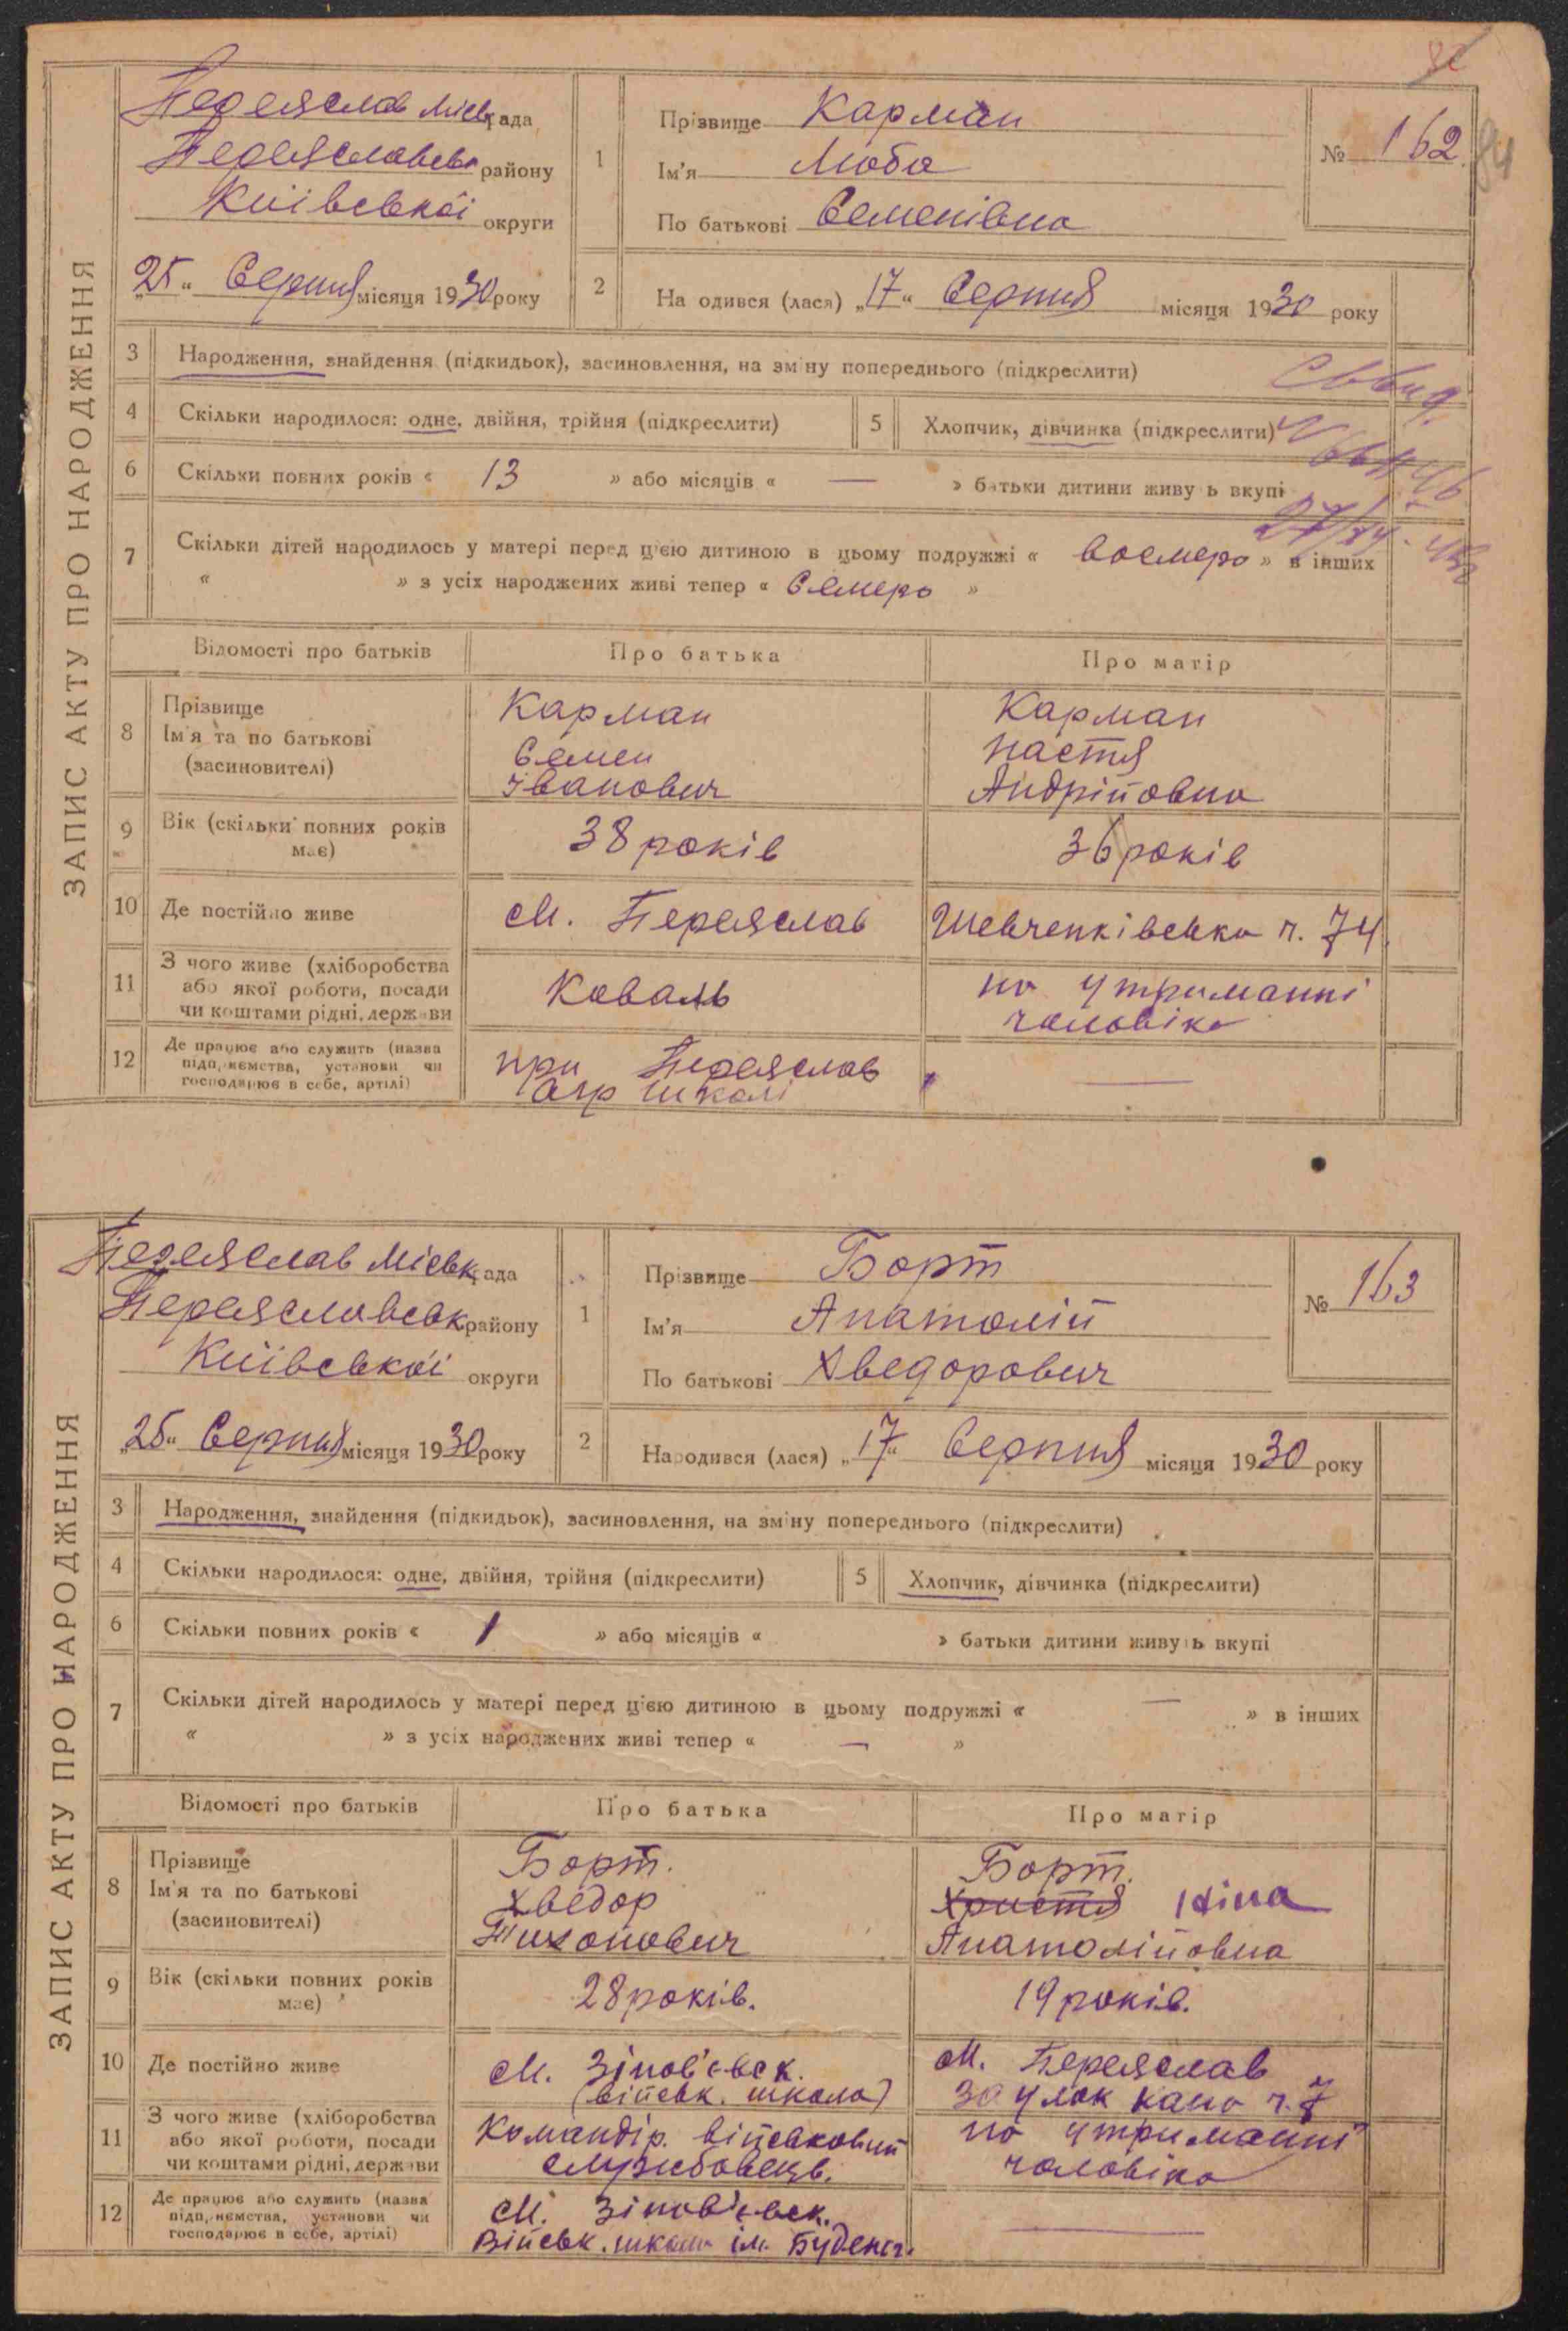 84
ЗАПИС АКТУ ПРО НАРОДЖЕННЯ
Переяслав Міськрада
Переяславськ району
Київської округи
„25“ Серпня місяця 1930 року
1
Прізвище Карман
Ім'я Люба
По батькові Семенівна
№ 162
2
На одився (лася) „17“ Серпня місяця 1930 року
3 Народження, знайдення (підкидьок), засиновлення, на зміну попереднього (підкреслити)
4 Скільки народилося: одне, двійня, трійня (підкреслити)
5 Хлопчик, дівчинка (підкреслити)
6 Скільки повних років « 13 » або місяців « — » батьки дитини живу ь вкупі
7 Скільки дітей народилось у матері перед цією дитиною в цьому подружжі « Восмеро » в інших
« » з усіх народжених живі тепер « Семеро »
Відомості про батьків Про батька Про матір
8 Прізвище
Ім'я та по батькові
(засиновителі)
Карман
Семен
Іванович
Карман
Настя
Андрійовна
9 Вік (скільки повних років
має)
38 років
36 років
10 Де постійно живе
м. Переяслав
Шевченківська ч. 74
11 З чого живе (хліборобства
або якої роботи, посади
чи коштами рідні, держави
Коваль
на утриманні
чоловіка
12 Де працює або служить (назва
підприємства, установи чи
господарює в себе, артілі)
при Переяслав
агр школі
—
ЗАПИС АКТУ ПРО НАРОДЖЕННЯ
Переяслав Міськрада
Переяславськ району
Київської округи
„25“ Серпня місяця 1930 року
1
Прізвище Борт
Ім'я Анатолій
По батькові Хведорович
№ 163
2
Народився (лася) „17“ Серпня місяця 1930 року
3 Народження, знайдення (підкидьок), засиновлення, на зміну попереднього (підкреслити)
4 Скільки народилося: одне, двійня, трійня (підкреслити)
5 Хлопчик, дівчинка (підкреслити)
6 Скільки повних років « 1 » або місяців « » батьки дитини живуть вкупі
7 Скільки дітей народилось у матері перед цією дитиною в цьому подружжі « — » в інших
« » з усіх народжених живі тепер « — »
Відомості про батьків Про батька Про матір
8 Прізвище
Ім'я та по батькові
(засиновителі)
Борт.
Хведор
Тихонович
Борт.
Христя Ніна
Анатолійовна
9 Вік (скільки повних років
має)
28 років.
19 років.
10 Де постійно живе
м. Зінов'євск.
(військ. школа)
м. Переяслав
ч. 7
11 З чого живе (хліборобства
або якої роботи, посади
чи коштами рідні, держави
Командір. військовий
службовець.
на утриманні
чоловіка
12 Де працює або служить (назва
підприємства, установи чи
господарює в себе, артілі)
м. Зінов'євск.
Військ. школа ім. Буденог.
—